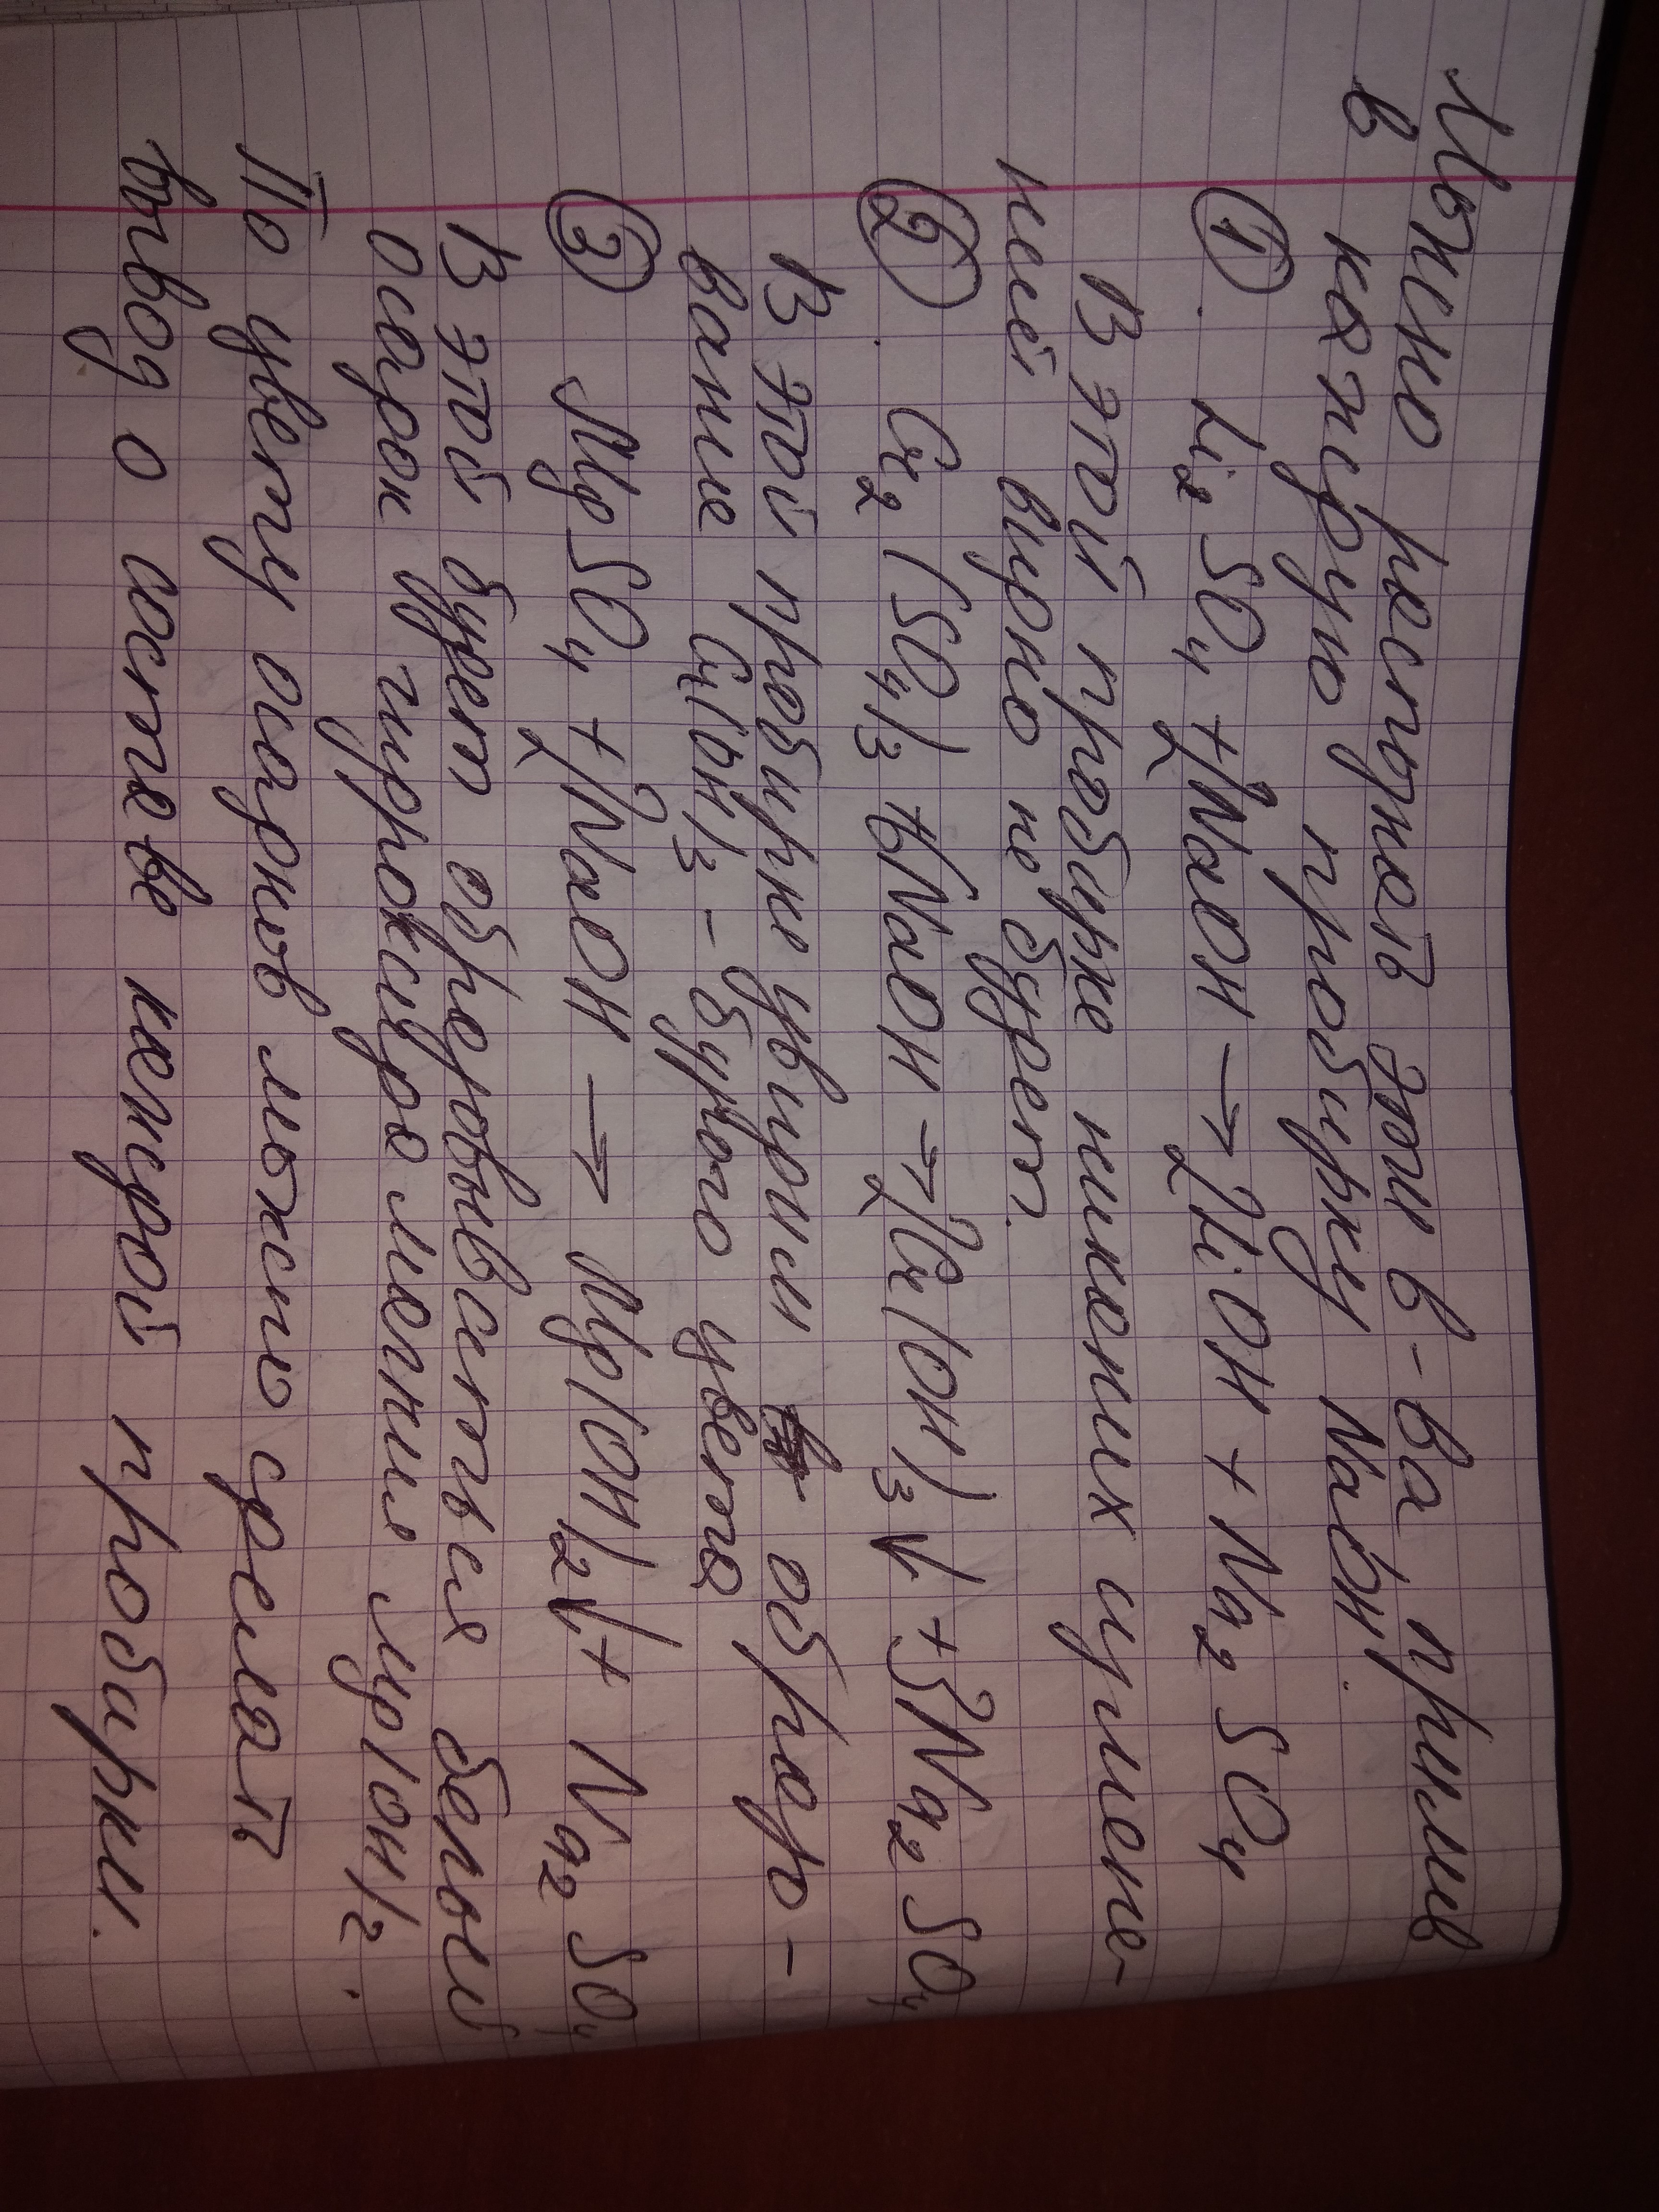 Можно распознать эти в-ва прилив
в каждую пробирку NaOH.
① Li₂SO₄ + 2NaOH → 2LiOH + Na₂SO₄
В этой пробирке никаких измене-
ний видно не будет.
②. Cr₂(SO₄)₃ + 6NaOH → 2Cr(OH)₃↓ + 3Na₂SO₄
В этой пробирке увидим образо-
вание Cr(OH)₃ - бурого цвета
③ MgSO₄ + 2NaOH → Mg(OH)₂↓ + Na₂SO₄
В этой будет образовываться белый
осадок гидроксида магния Mg(OH)₂.
По цвету осадков можно сделать
вывод о составе каждой пробирки.